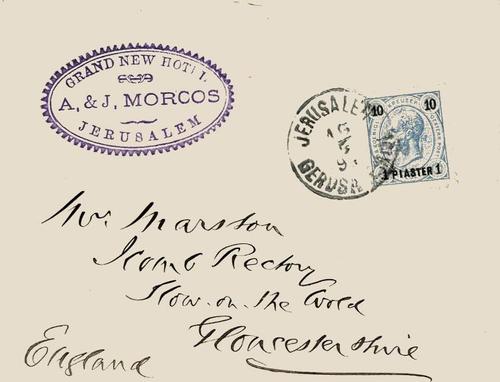 GRAND NEW HOTEL
A. & J. MORCOS
JERUSALEM
JERUSALEM
GERUSA
10 KREUZER 10
1 PIASTER 1
Mrs. Marston
Icomb Rectory
Stow. on. the Wold
Gloucestershire
England